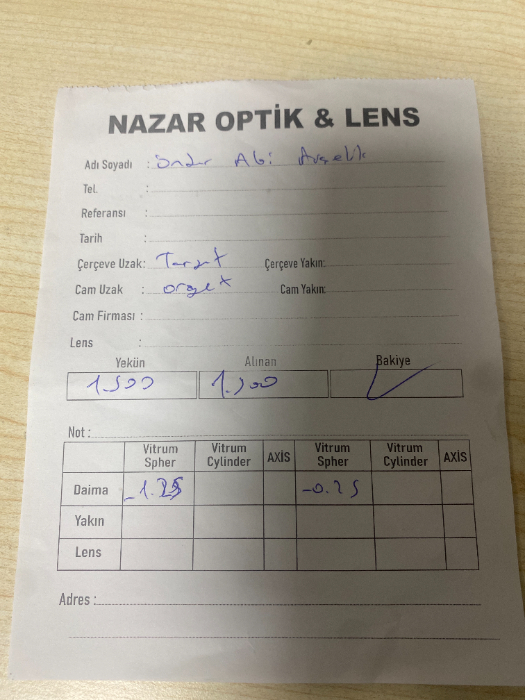 NAZAR OPTİK & LENS
Adı Soyadı : Önder Abi
Tel. :
Referansı :
Tarih :
Çerçeve Uzak: Çerçeve Yakın:
Cam Uzak : orgex Cam Yakın:
Cam Firması :
Lens :
Yekün Alınan Bakiye
1.500 1.500
Not :
Vitrum Spher Vitrum Cylinder AXİS Vitrum Spher Vitrum Cylinder AXİS
Daima -1.25 -0.25
Yakın
Lens
Adres :